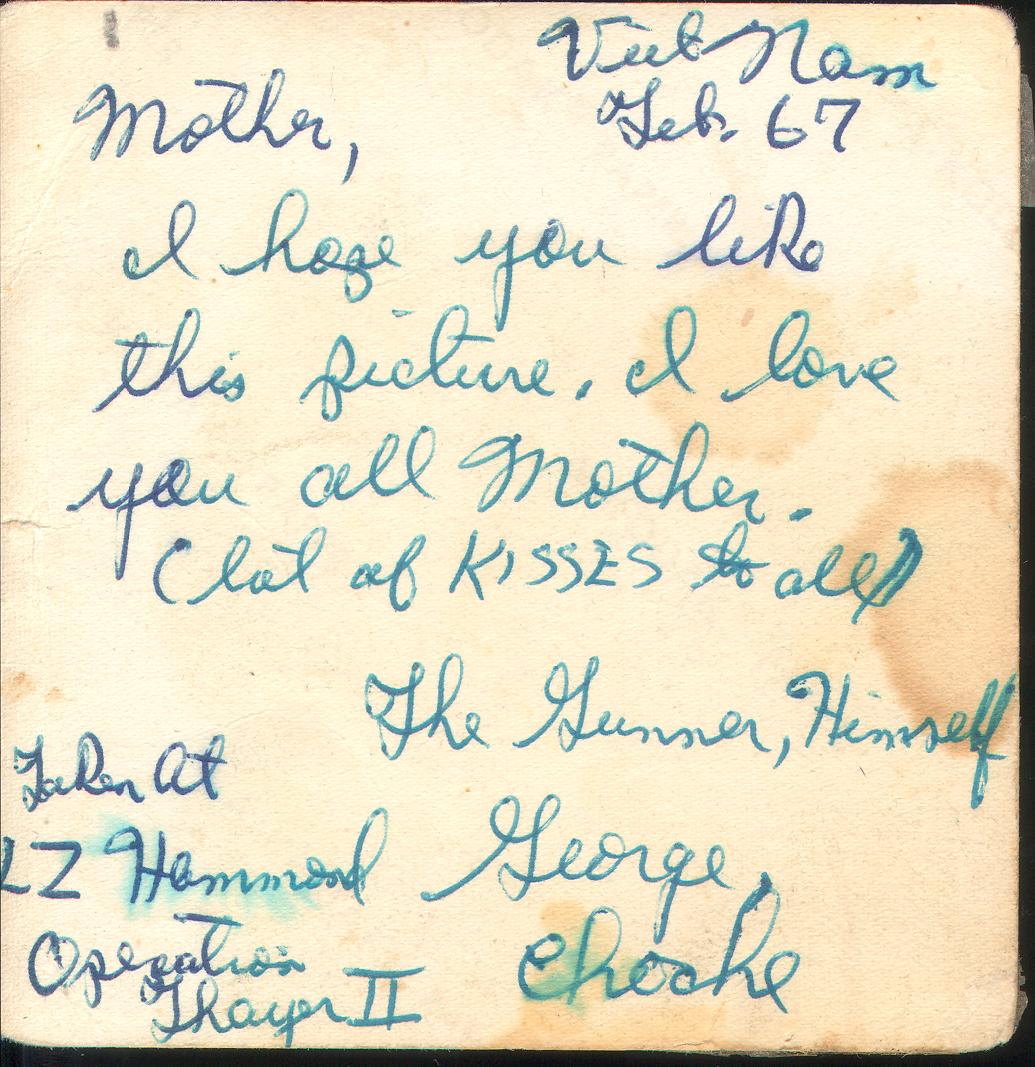 Viet Nam
Feb. 67
Mother,
I hope you like
this picture. I love
you all Mother.
(lot of KISSES to all)
The Gunner, Himself
Taken At
LZ Hammond
George,
Choche
Operation
Thayer II